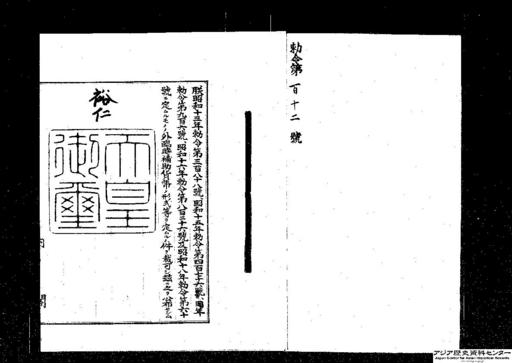 勅令第百十二號
朕昭和十三年勅令第三百八十八號、昭和十五年勅令第四百七十六號、同年
勅令第九百六號、昭和十六年勅令第八百三十六號及昭和十八年勅令第六十
號ニ定ムルモノノ外臨時補助貨幣ノ形式等ヲ定ムルノ件ヲ裁可シ茲ニ之ヲ公布セシム
裕仁
天皇御璽
アジア歴史資料センター
Japan Center for Asian Historical Records